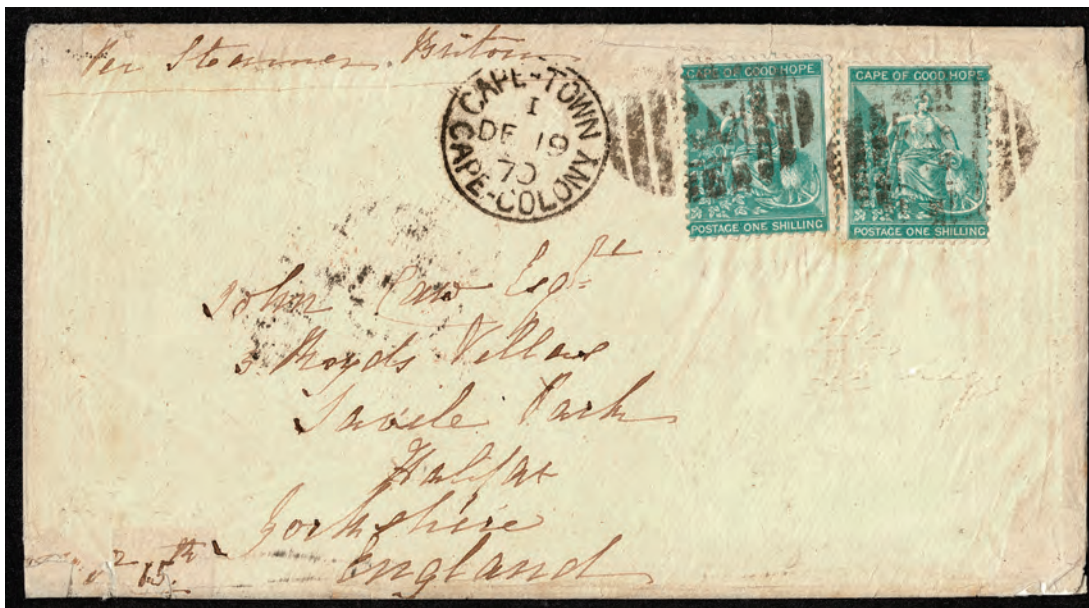 Per Steamer Briton
CAPE-TOWN
1
DE 19
70
CAPE-COLONY
CAPE OF GOOD HOPE
POSTAGE ONE SHILLING
CAPE OF GOOD HOPE
POSTAGE ONE SHILLING
John Caw Esqre
3 Royds Villas
Savile Park
Halifax
Yorkshire
England
15th